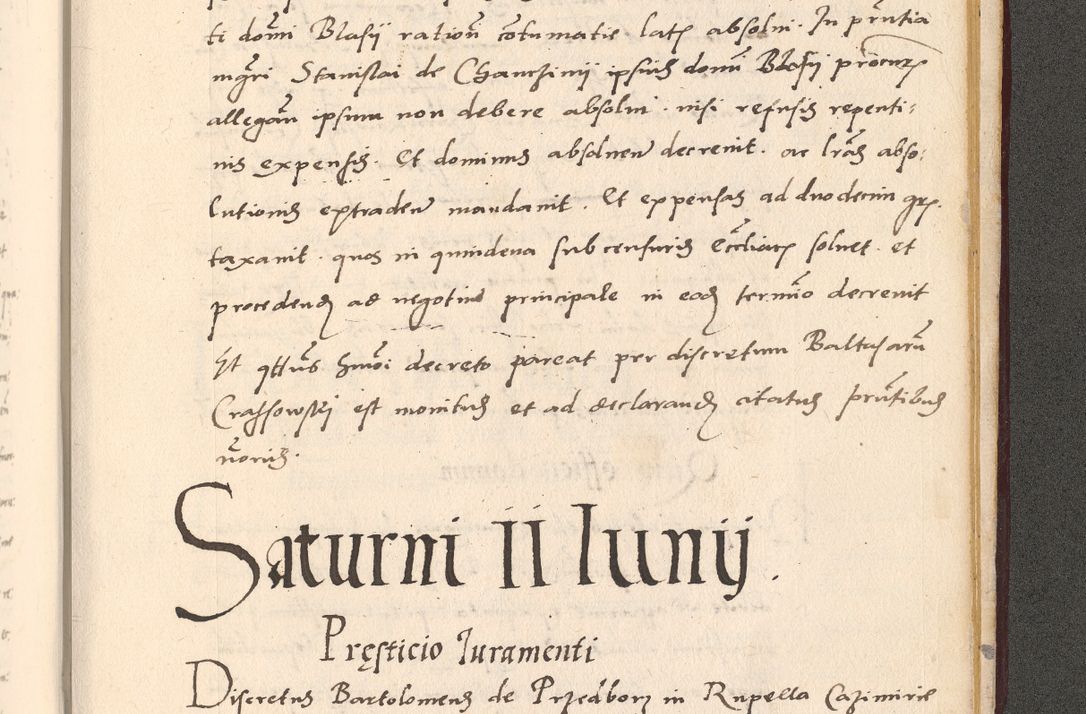 ti domi Blasij ration cotumatie late absolui. In prntia
mgri Stanislai de Chanczinij ipsius domi Blasij procure
allegan ipsum non debere absolui. nisi refusis repenti:
nis expensis. Et dominus absoluen decreuit. ac lras abso:
lutionis extraden mandauit. Et expensas ad duodecim gr.
taxauit. quos in quindena sub censuris eccliar soluet. et
procedend ad negotiu principale in eod termio decreuit
Et qtus hmoi decreto pareat per discretum Baltasaru
Crassowski est monitus et ad declarand citatus prntibus
Saturni II Iunij.
Pręsticio Iuramenti
Discretus Bartolomeus de Przedborz in Rupella Cazimirie